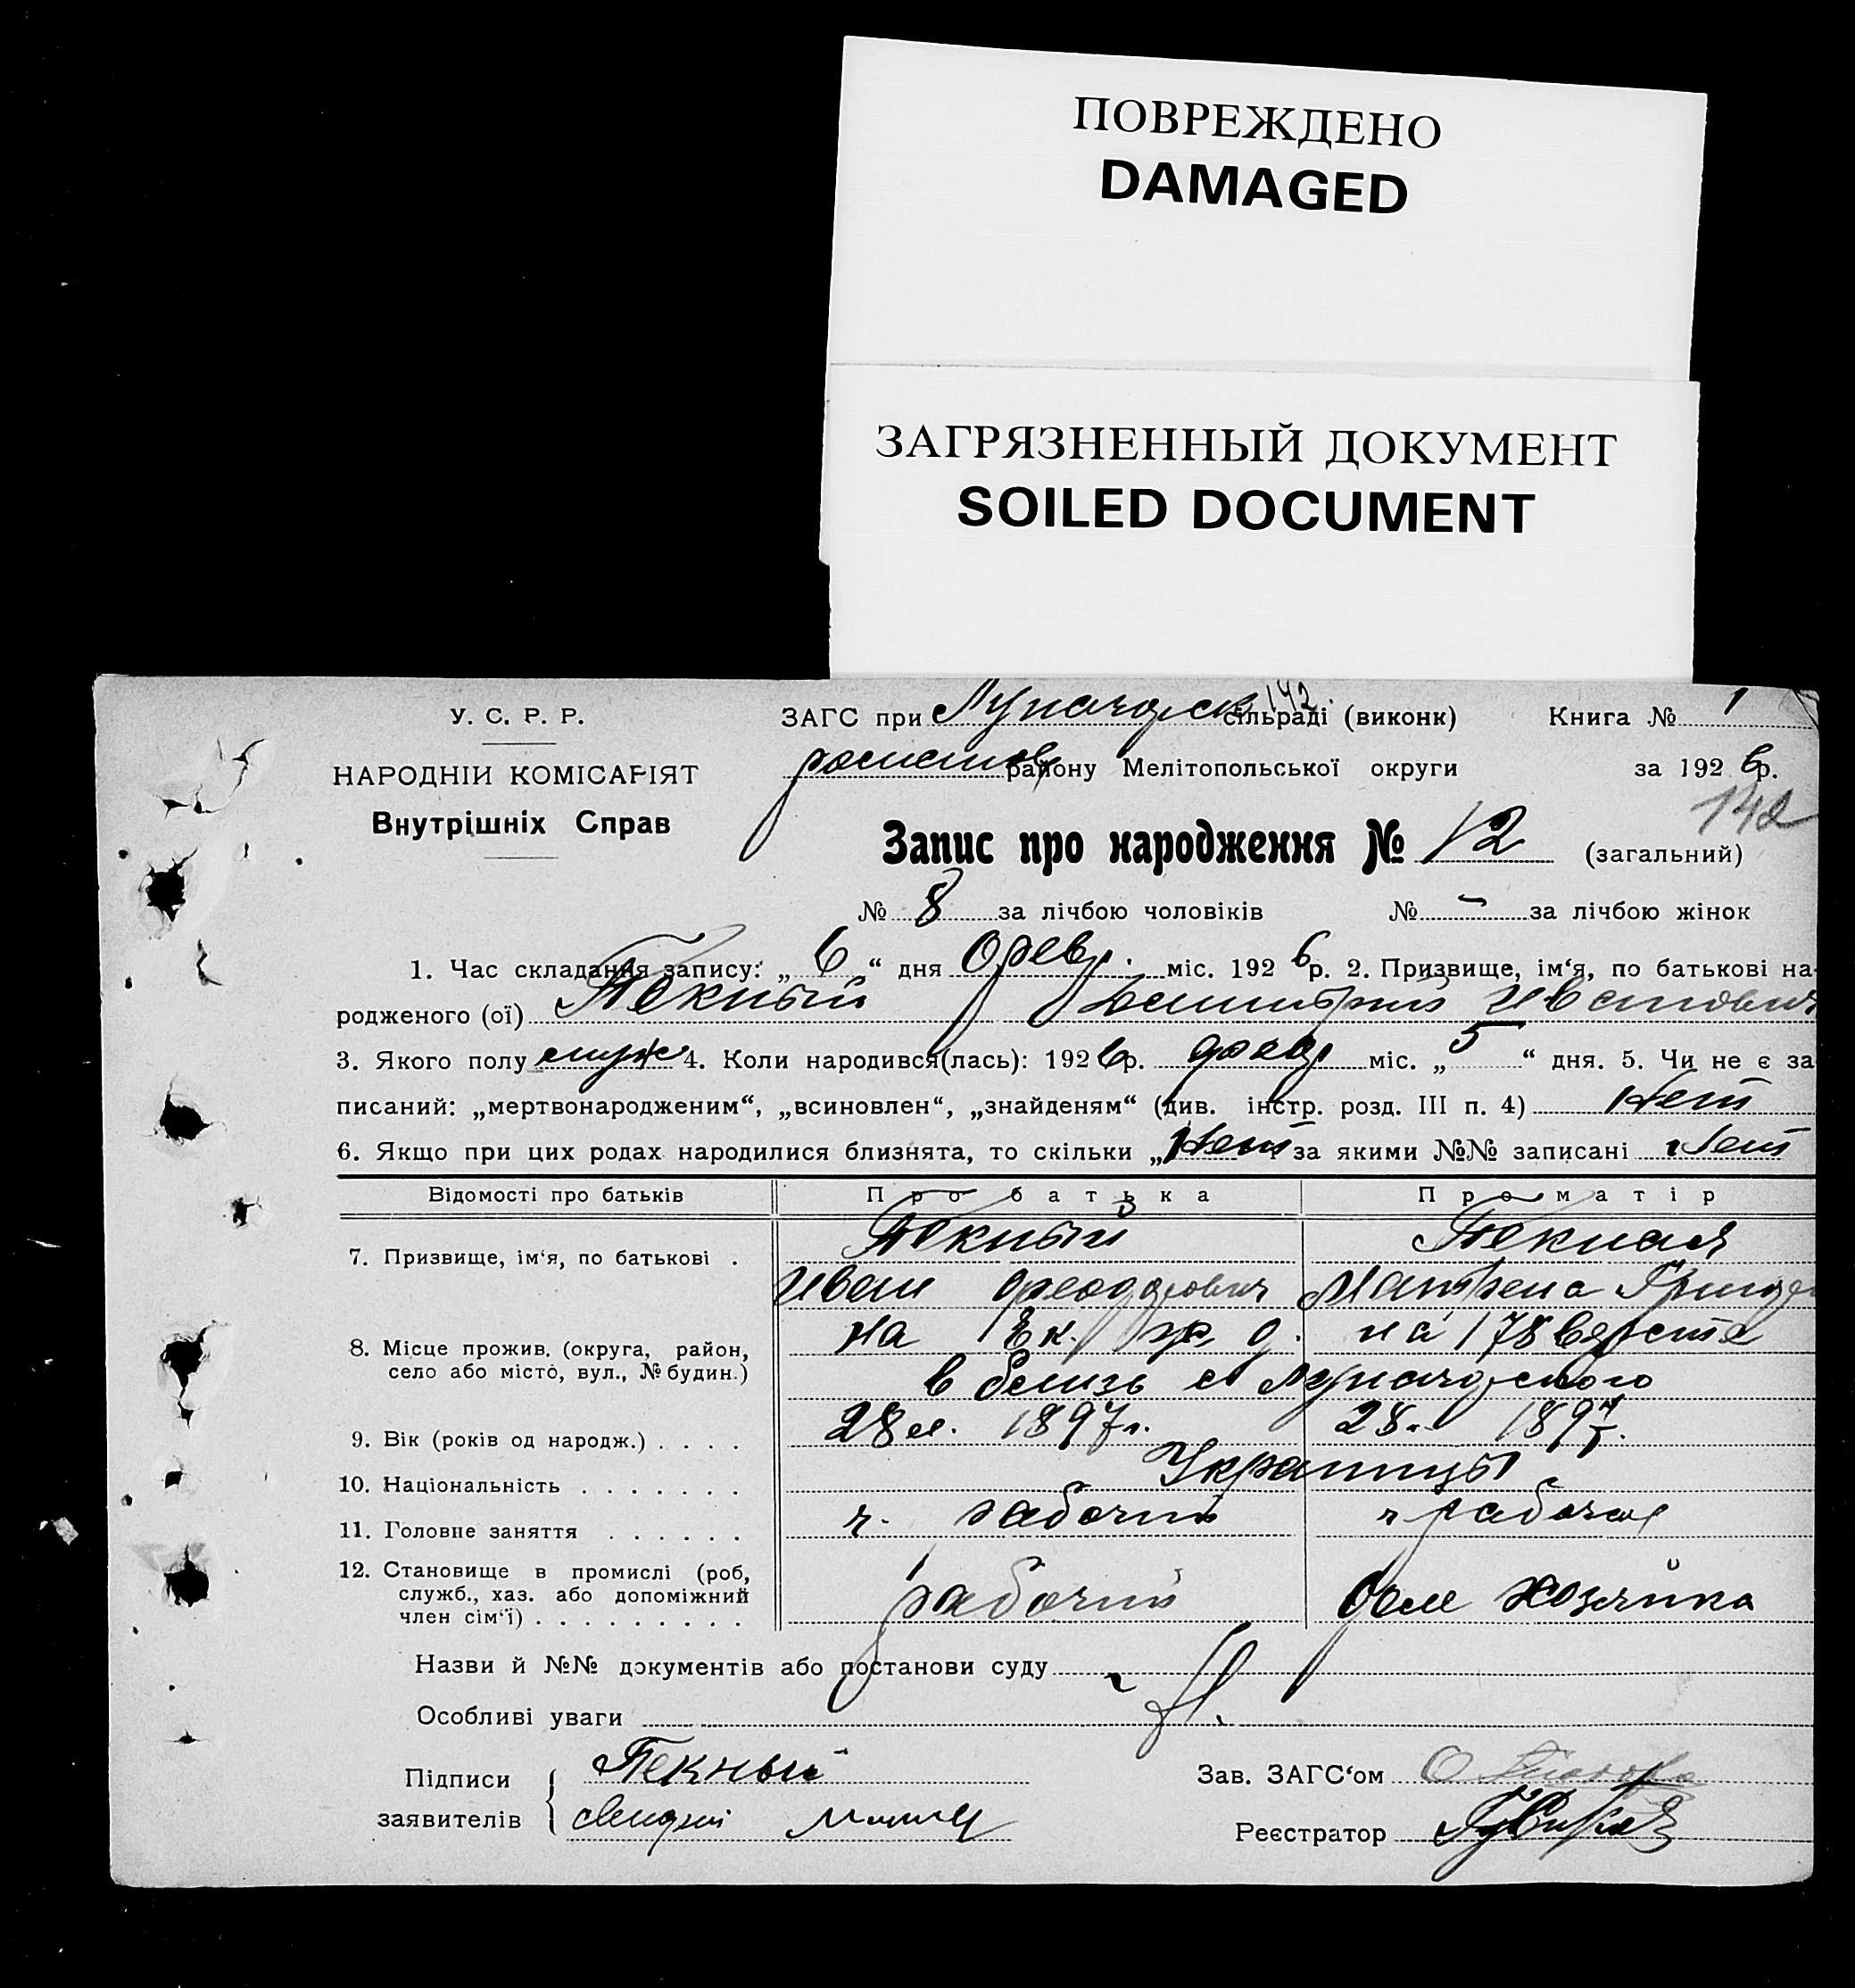 ПОВРЕЖДЕНО
DAMAGED
ЗАГРЯЗНЕННЫЙ ДОКУМЕНТ
SOILED DOCUMENT
У. С. Р. Р.
НАРОДНІЙ КОМІСАРІЯТ
Внутрішніх Справ
142
ЗАГС при Луначарск сільраді (виконк) Книга № 1
району Мелітопольської округи за 1926 р.
142
Запис про народження № 12 (загальний)
№ 8 за лічбою чоловіків № - за лічбою жінок
1. Час складання запису: „ 6 “ дня Февр. міс. 1926 р. 2. Призвище, ім‘я, по батькові на-
родженого (ої) Пекный Дмитрий Иванович
3. Якого полу муж 4. Коли народився(лась): 1926 р. февр міс. „ 5 “ дня. 5. Чи не є за-
писаний: „мертвонародженим“, „всиновлен“, „знайденям“ (див. інстр. розд. III п. 4) Нет
6. Якщо при цих родах народилися близнята, то скільки „ Нет за якими №№ записані Нет
Відомості про батьків Про батька Про матір
7. Призвище, ім‘я, по батькові . Пекный Пекная
Иван Феодорович Матрена
8. Місце прожив. (округа, район, село або місто, вул., № будин.) на Ек. ж д. на 178 версте
в близь с Луначарского
9. Вік (років од народж.) . . . . 28 л. 1897 г. 28 л. 1897 г.
10. Національність . . . . . . . Украинцы
11. Головне заняття . . . . . . ч. рабочий ч рабочая
12. Становище в промислі (роб, служб., хаз. або допоміжний член сім‘ї) . . . . . . . . . рабочий дом хозяйка
Назви й №№ документів або постанови суду
Особливі уваги
Підписи заявителів { Пекный
Зав. ЗАГС‘ом
Реєстратор